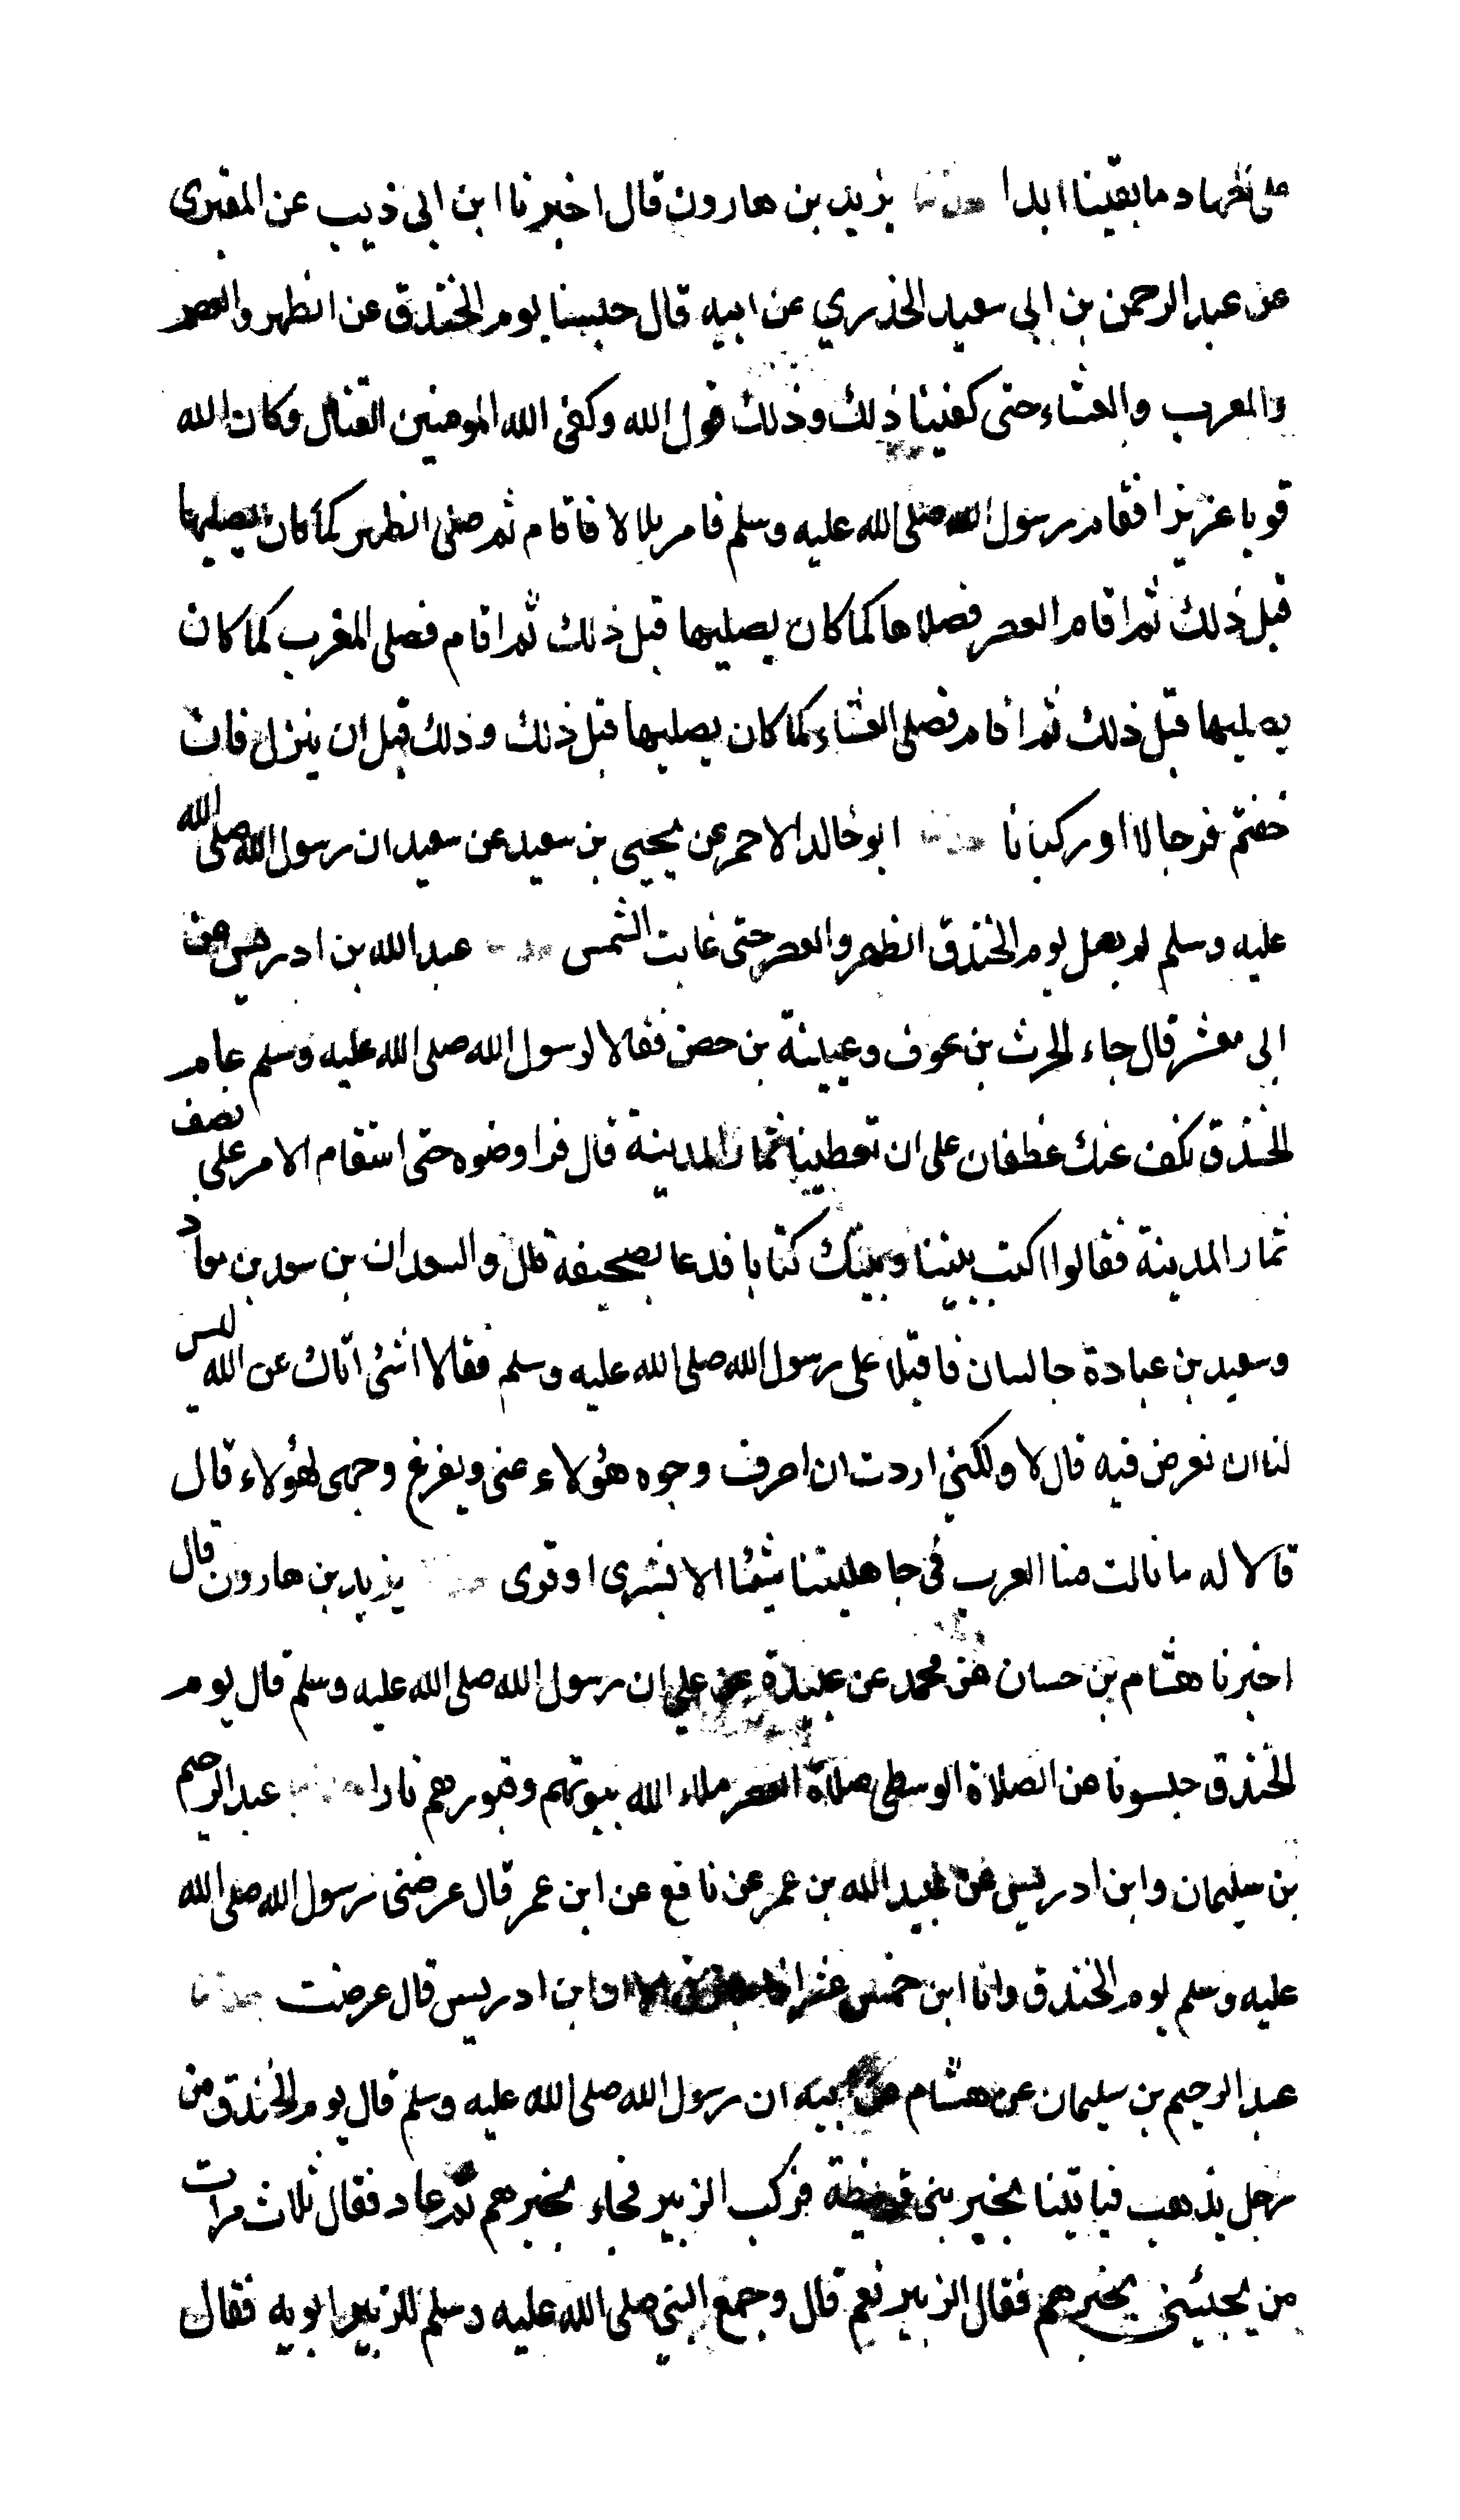 على الجهاد ما بقينا ابدا حدثنا يزيد بن هارون قال اخبرنا ابن ابي ذيب عن المقبرى
عن عبد الرحمن بن ابي سعيد الخدري عن ابيه قال حبسنا يوم الخندق عن الظهر والعصر
والمغرب والعشاء حتى كفينا ذلك وذلك قول الله وكفى الله المومنين القتال وكان الله
قويا عزيزا فقام رسول الله صلى الله عليه وسلم فامر بلالا فاقام ثم صلى الظهر كما كان يصليها
قبل ذلك ثم اقام العصر فصلاها كما كان يصليها قبل ذلك ثم اقام فصلى المغرب كما كان
يصليها قبل ذلك ثم اقام فصلى العشاء كما كان يصليها قبل ذلك وذلك قبل ان ينزل فان
خفتم فرجالا او ركبانا حدثنا ابو خالد الاحمر عن يحيى بن سعيد عن سعيد ان رسول الله صلى الله
عليه وسلم لم يصل يوم الخندق الظهر والعصر حتى غابت الشمس حدثنا عبد الله بن ادريس عن
ابي معشر قال جاء الحرث بن عوف وعيينة بن حصن فقالا لرسول الله صلى الله عليه وسلم عام
الخندق نكف عنك غطفان على ان تعطينا ثمار المدينة قال فراوضوه حتى استقام الامر على نصف
ثمار المدينة فقالوا اكتب بيننا وبينك كتابا فدعا بصحيفة قال والسعدان بن سعد بن معاد
وسعيد بن عبادة جالسان فاقبلا على رسول الله صلى الله عليه وسلم فقالا اشئ اتاك عن الله ليس
لنا ان نعرض فيه قال لا ولكني اردت ان اصرف وجوه هؤلاء عنى ويفرغ وجهى لهؤلاء قال
قالا له ما نالت منا العرب في جاهليتنا شيئا الا بشرى او قرى حدثنا يزيد بن هارون قال
اخبرنا هشام بن حسان عن محمد عن عبيدة عن علي ان رسول الله صلى الله عليه وسلم قال يوم
الخندق حبسونا عن الصلاة الوسطى صلاة العصر ملاء الله بيوتهم وقبورهم نارا حدثنا عبد الرحيم
بن سليمان وابن ادريس عن عبيد الله بن عمر عن نافع عن ابن عمر قال عرضنى رسول الله صلى الله
عليه وسلم يوم الخندق وانا ابن خمس عشر الا ابن ادريس قال عرضت حدثنا
عبد الرحيم بن سليمان عن هشام عن ابيه ان رسول الله صلى الله عليه وسلم قال يوم الخندق من
رجل يذهب فياتينا بخبر بنى قريظة فركب الزبير فجاء بخبرهم ثم عاد فقال ثلاث مرات
من يجيئنى بخبرهم فقال الزبير نعم قال وجمع النبي صلى الله عليه وسلم للزبير ابويه فقال